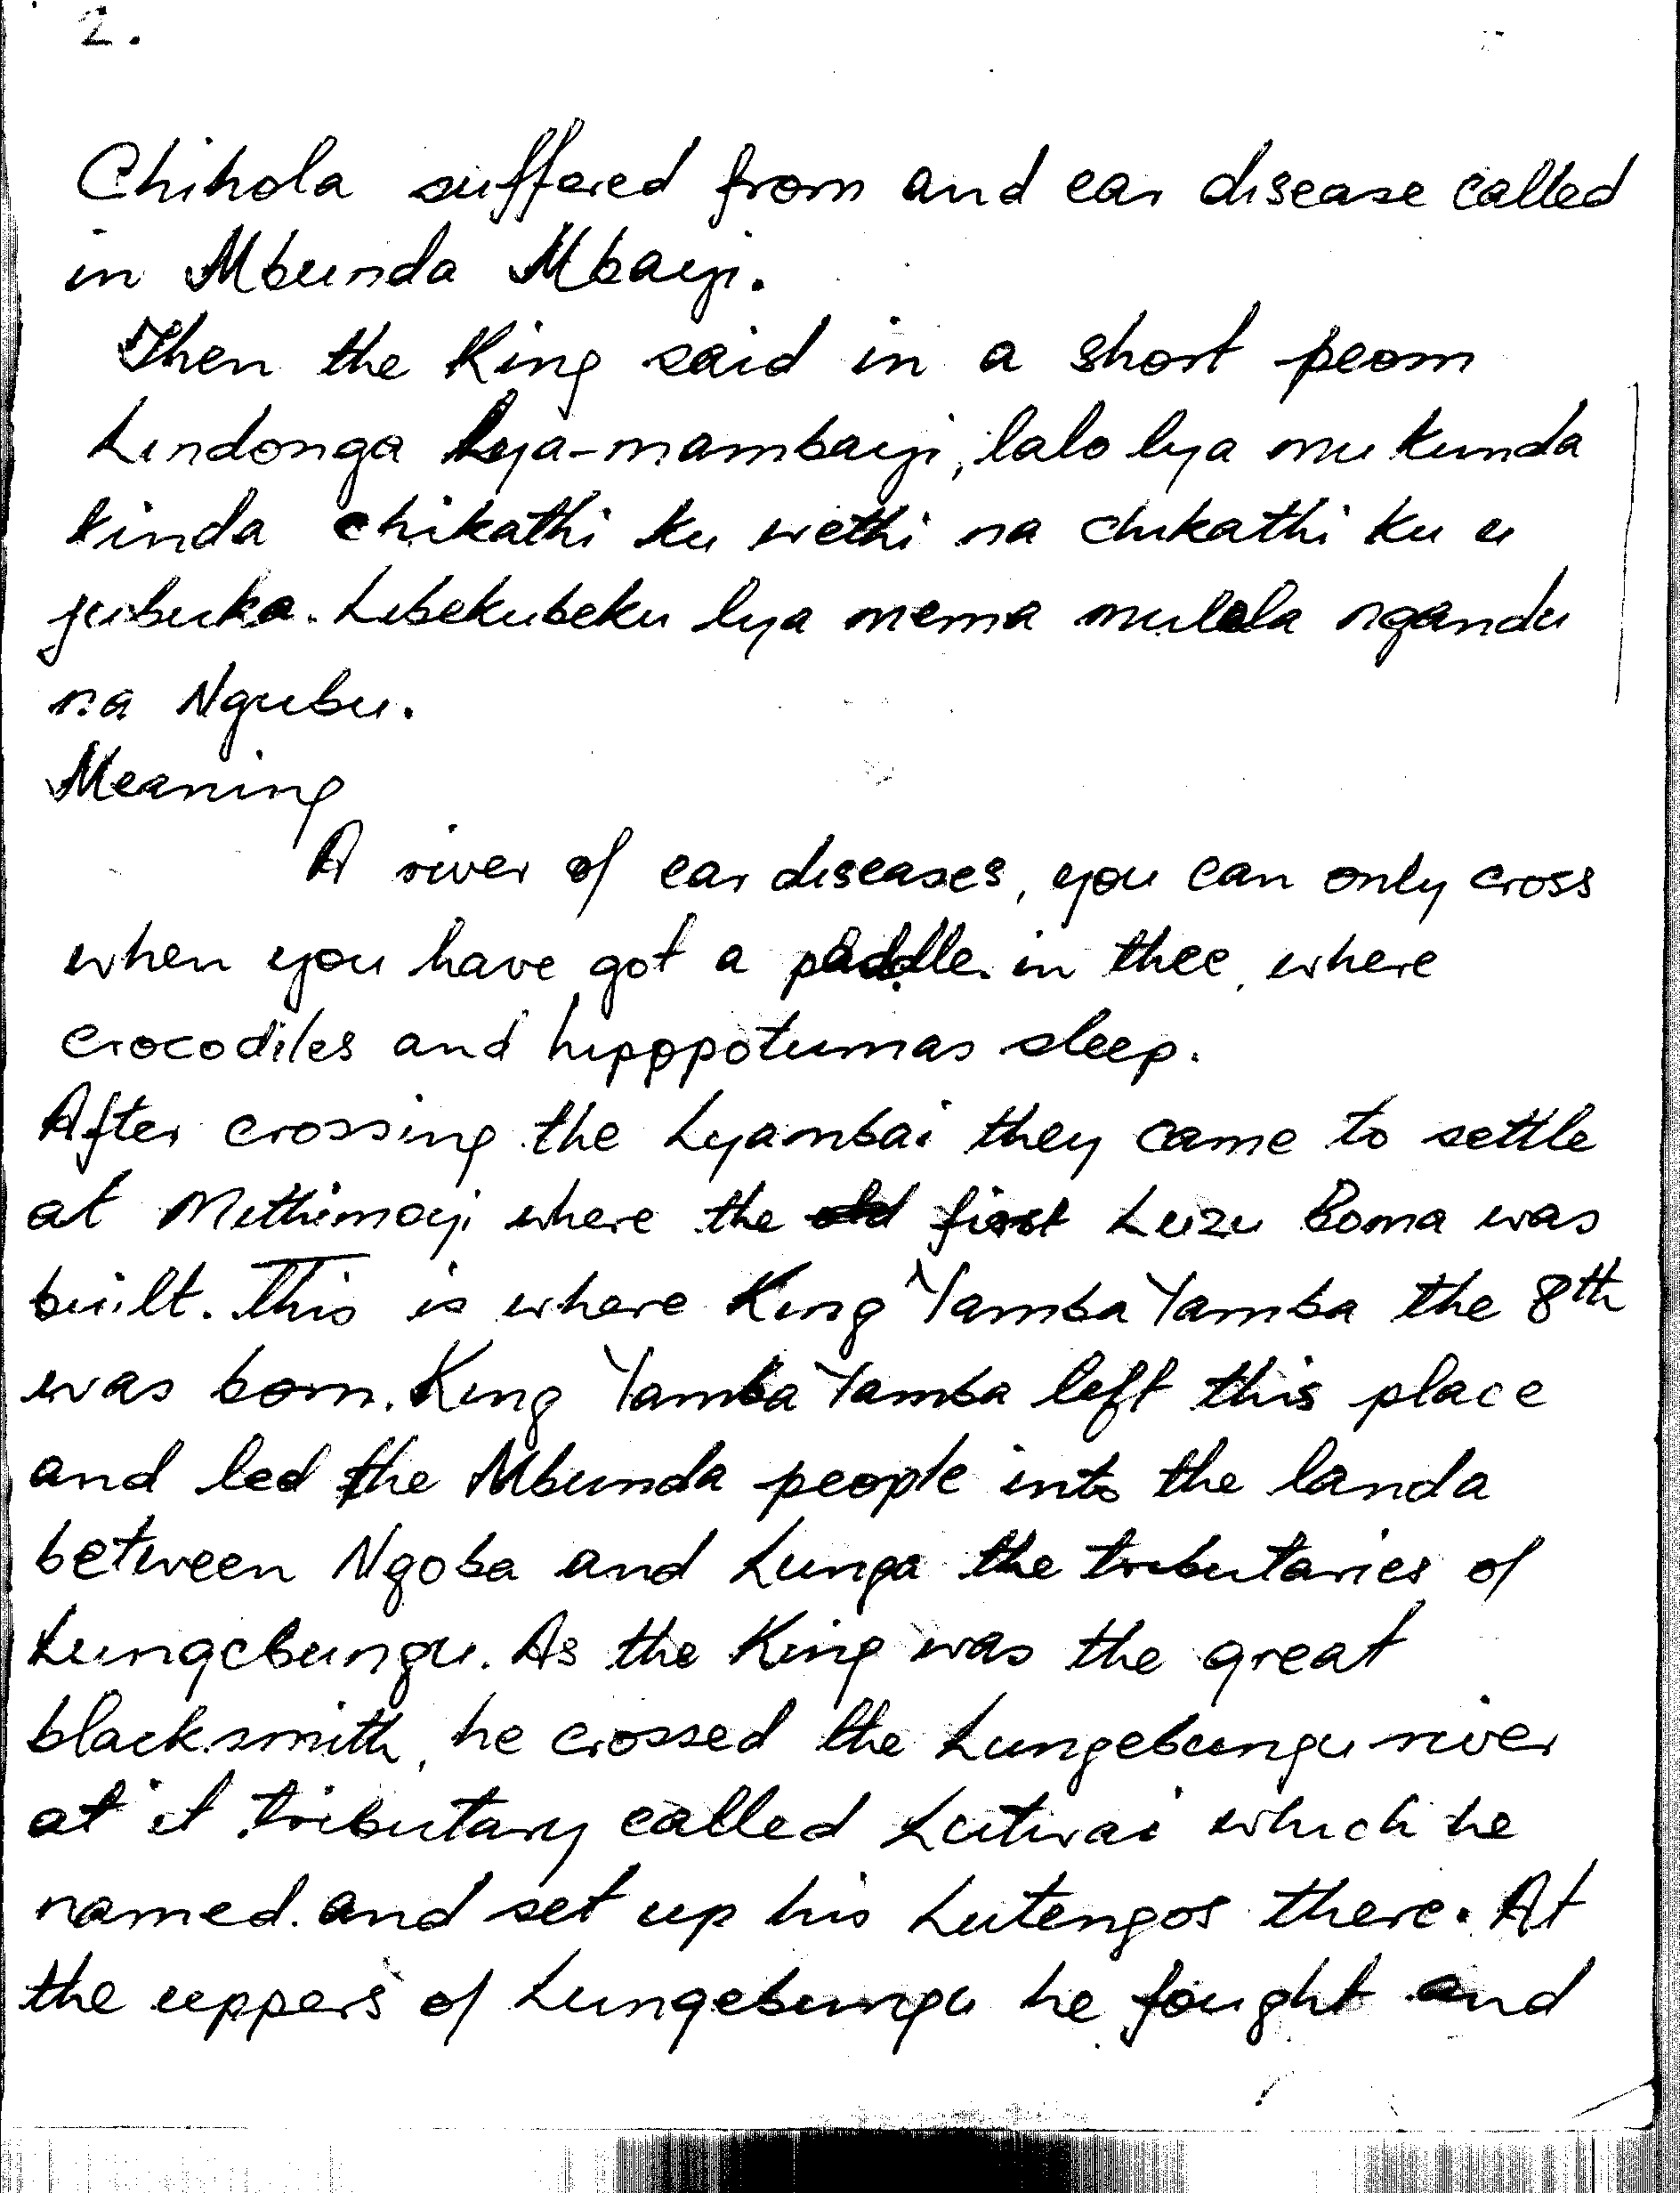 2.
Chihola suffered from and ear disease called
in Mbunda Mbayi.
Then the King said in a short peom
Lindonga lya-mambayi, lalo lya mu kunda
kinda chikathi ku wethi na chikathi ku u
jubuka. Libekubeku lya mema mulala ngandu
na Ngubu.
Meaning
A river of ear diseases, you can only cross
when you have got a paddle in thee, where
crocodiles and hipppotumas sleep.
After crossing the Lyambai they came to settle
at Mithimoyi where the old first Luzu Boma was
built. This is where King Yamba Yamba the 8th
was born. King Yamba Yamba left this place
and led the Mbunda people into the landa
between Ngoba and Lunga the tributaries of
Lungebungu. As the King was the great
blacksmith, he crossed the Lungebungu river
at it tributary called Lutwai which he
named. and set up his Lutengos there. At
the uppers of Lungebungu he fought and